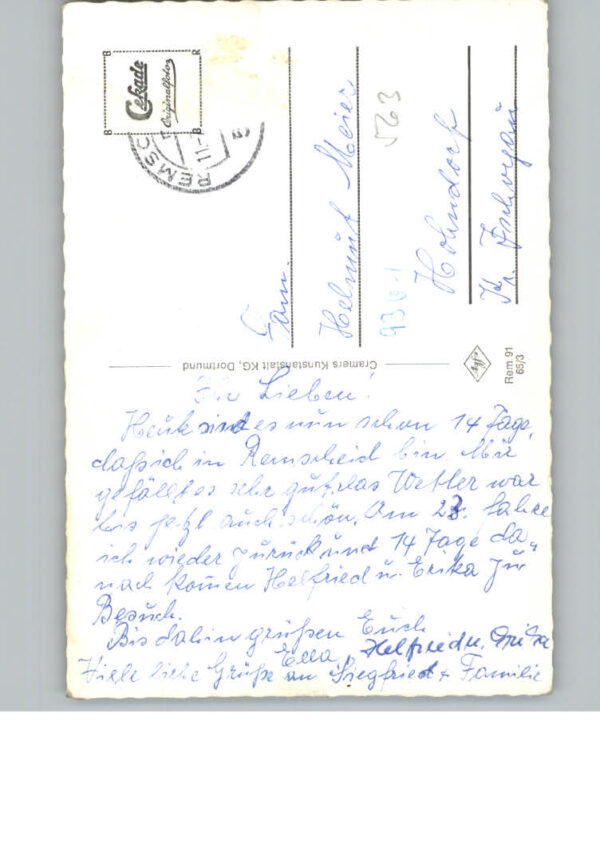 Cekade
Originalfoto
B R
B B
REMSC
11.
Fam.
Helmut Meier
563
936-1
Hohndorf
Kr. Zschopau
Cramers Kunstanstalt KG, Dortmund
Rem 91
65/3
Ihr Lieben!
Heute sind es nun schon 14 Tage,
daß ich in Remscheid bin. Mir
gefällt es sehr gut, das Wetter war
bis jetzt auch schön. Am 23. fahre
ich wieder zurück und 14 Tage da-
nach kommen Helfried u. Erika zu
Besuch.
Bis dahin grüßen Euch
Ella, Helfried u. Erika
Viele liebe Grüße an Siegfried + Familie